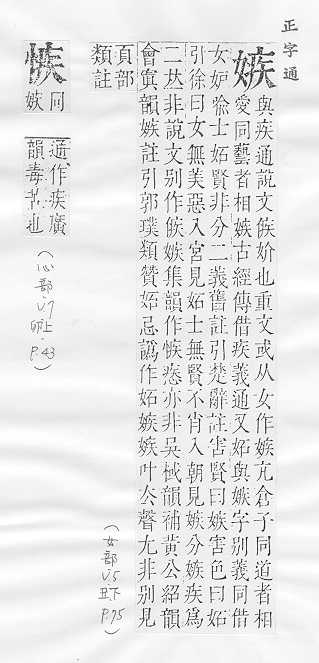 正字通
嫉 與疾通說文㑵妎也重文或从女作嫉亢倉子同道者相
愛同藝者相嫉古經傳借疾義通又妬與嫉字別義同借
女妒喩士妬賢非分二義舊註引楚辭註害賢曰嫉害色曰妬
引徐曰女無美惡入宮見妬士無賢不肖入朝見嫉分嫉疾爲
二𠀤非說文別作㑵嫉集韻作愱㤧亦非吳棫韻補黃公紹韻
會寘韻嫉註引郭璞類贊妬忌譌作妬嫉嫉叶去聲尢非別見
頁部
類註
(女部.V.5 丑下 P.75)
愱 同嫉
通作疾廣
韻毒苦也
(心部.V.7 卯上. P.43)